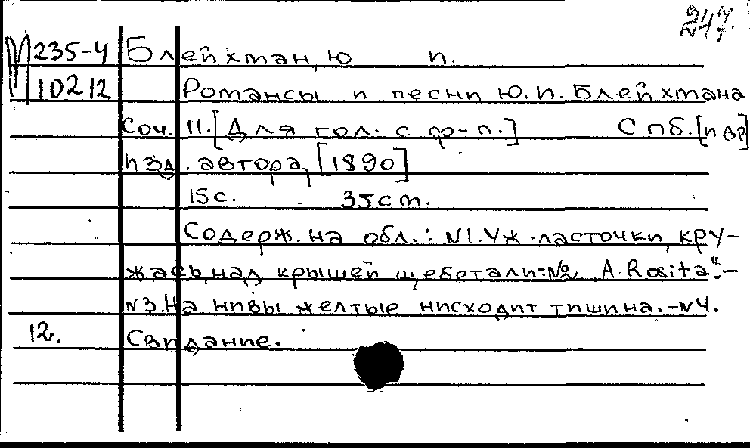 М 235-4 Блейхтан, Ю И.
10212 Romансы и песни Ю.И. Блейхмана
Соч. 11. [Для гол. с ф-п.] Спб. [и др]
изд. автора, [1890]
15 с. 35 cm.
Содерж. на обл.: №1. Уж ласточки, кру-
жась, над крышей щебетали- №2 „A. Rosita".-
№3. На нивы желтые нисходит тишина. -№4.
12. Свидание.